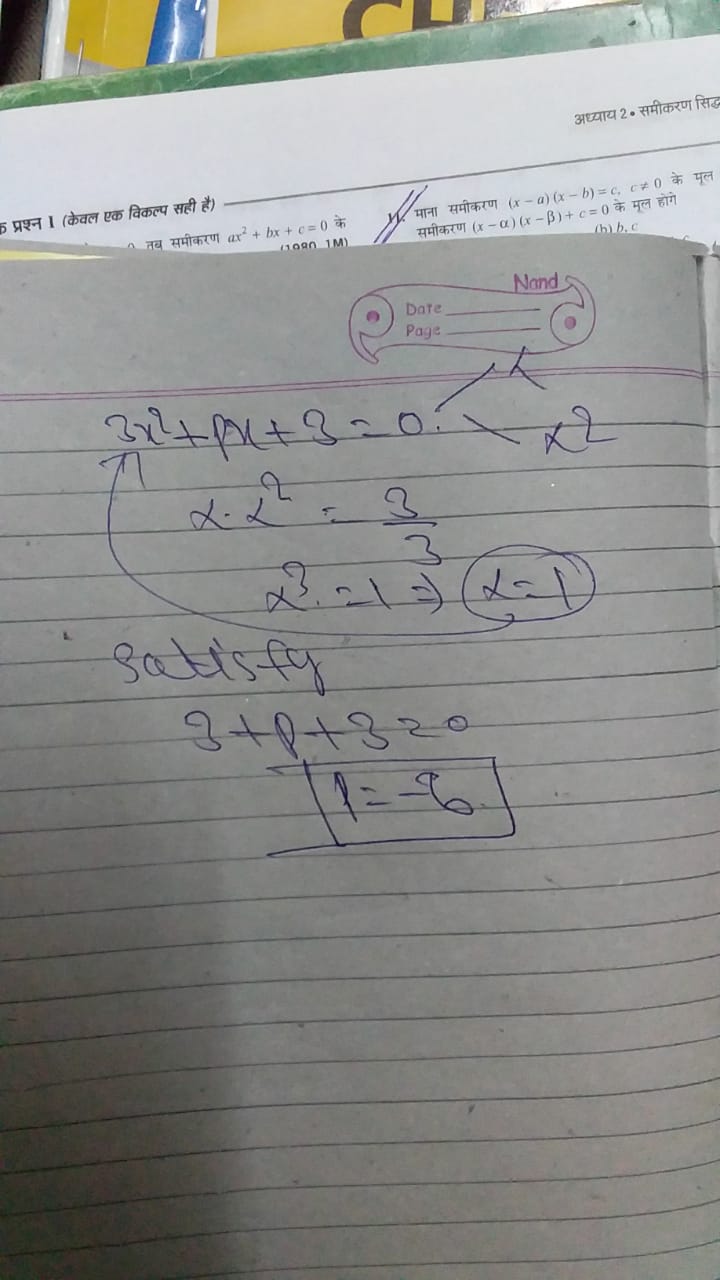 अध्याय 2 • समीकरण सिद्ध
प्रश्न 1 (केवल एक विकल्प सही है)
तब समीकरण ax² + bx + c = 0 के
(1980, 1M)
माना समीकरण (x – a) (x – b) = c, c ≠ 0 के मूल
समीकरण (x – α) (x – β) + c = 0 के मूल होंगे
(b) b, c
Nand
Date
Page
α
3x² + px + 3 = 0.
α²
α·α² = 3/3
α³ = 1 ⇒ α = 1
Satisfy
3 + p + 3 = 0
p = -6.